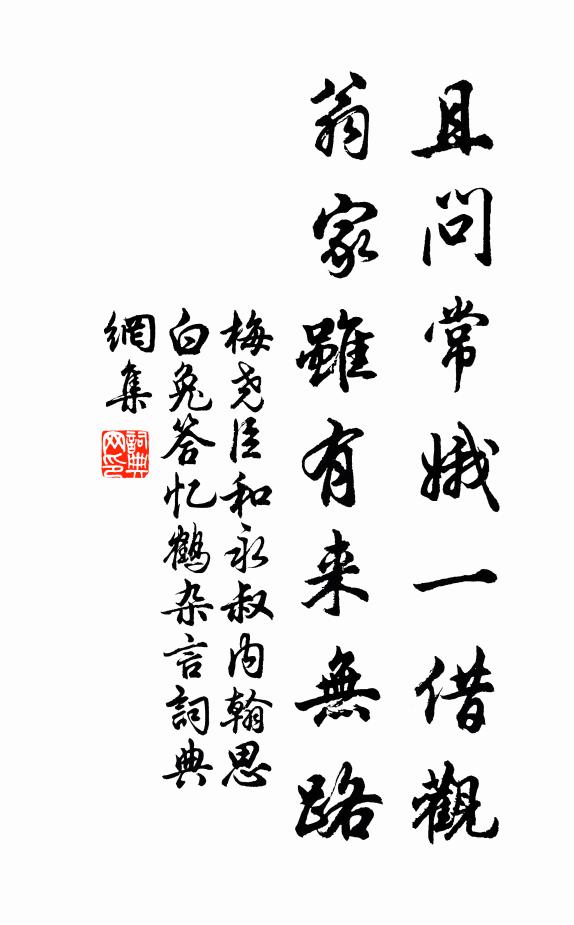 且問常娥一借觀
翁家雖有来無路
梅尧臣和永叔内翰思
白兔答忆鶴杂言詞典
網集
詞典
网印